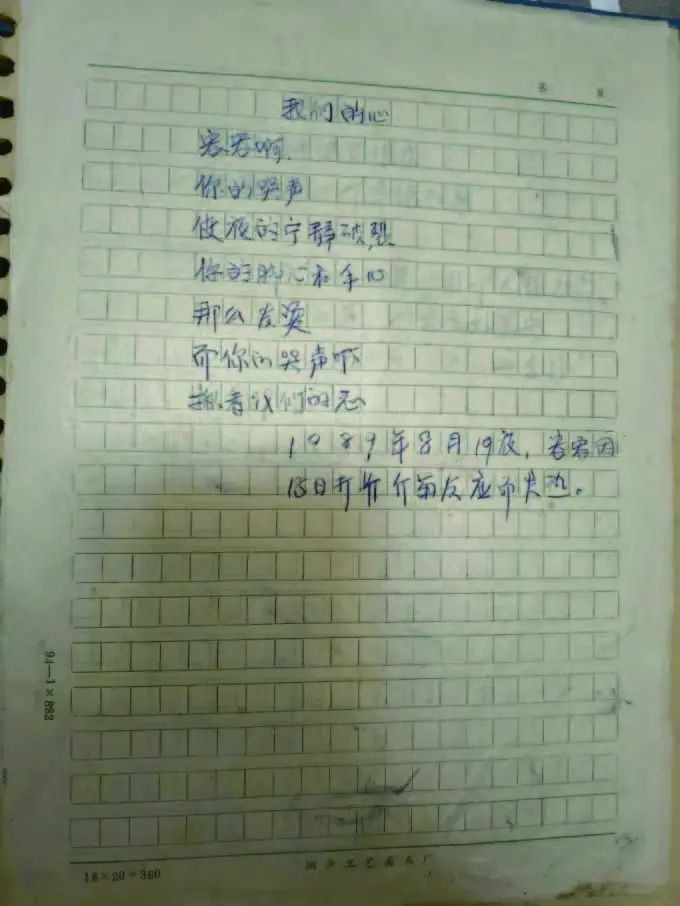 第 页
我们的心
容容啊.
你的哭声
使夜的宁静破裂
你的脚心和手心
那么发烫
而你的哭声啊
揪着我们的心
1989年8月19夜,容容因
18日打 反应而发热。
94—1×882
18×20=360
工艺美术厂